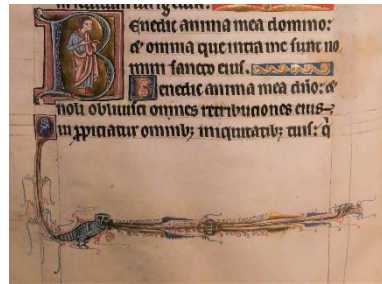 Benedic anima mea domino:
et omnia que intra me sunt no
mini sancto eius.
Benedic anima mea dño: et
noli oblivisci omnes retributiones eius
Qui ꝓpiciatur omnibꝫ iniquitatibꝫ tuis: q̃